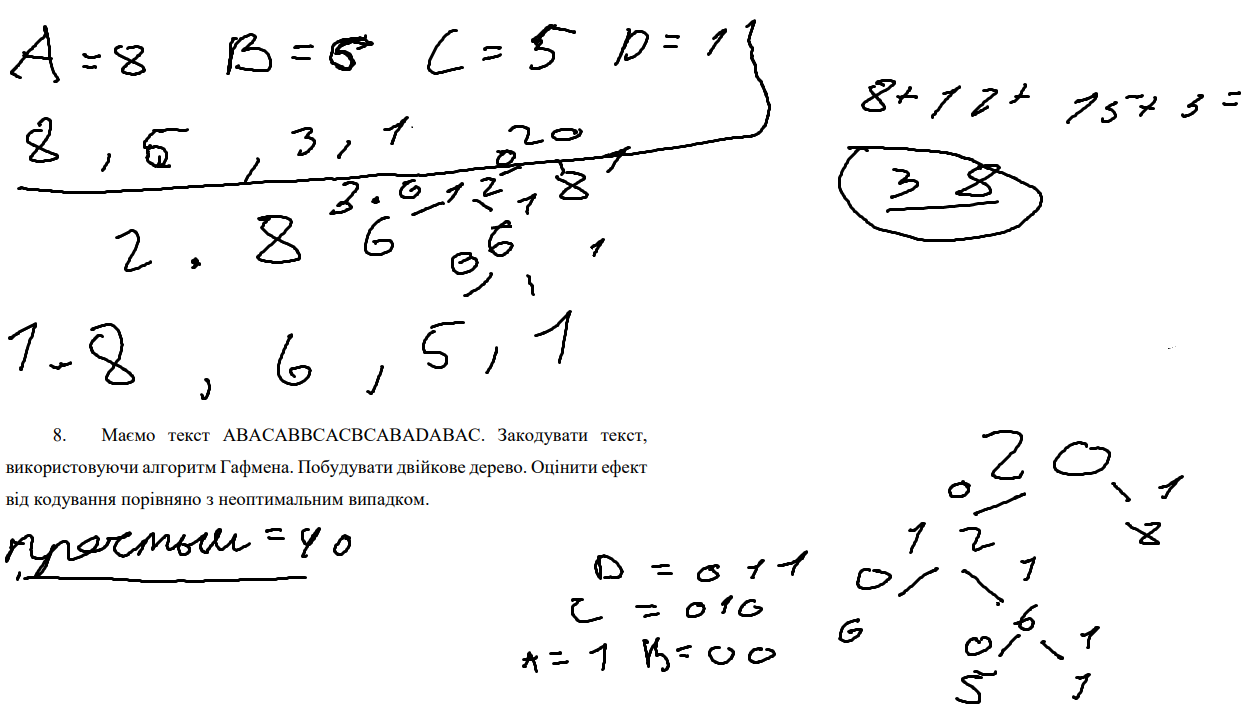 A = 8 B = 6 C = 5 D = 1
8 + 12 + 15 + 3 =
38
8 , 6 , 3 , 1
20
0 1
3. 0 12 1 8
2 . 8 6 6 1
0
1 - 8 , 6 , 5 , 1
8. Маємо текст ABACABBCACBCABADABAC. Закодувати текст,
використовуючи алгоритм Гафмена. Побудувати двійкове дерево. Оцінити ефект
від кодування порівняно з неоптимальним випадком.
простым = 40
20
0 1
12 8
0 1
6 6
0 1
5 1
D = 011
C = 010
A = 1 B = 00